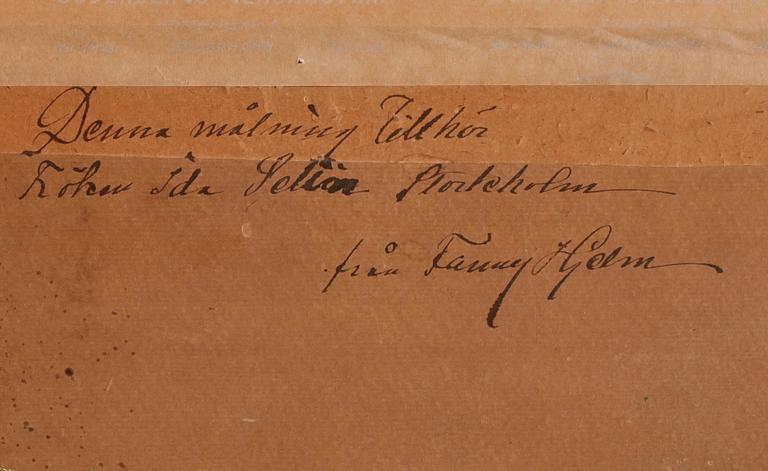 Denna målning Tillhör
Fröken Ida Stockholm
från Fanny Hjelm